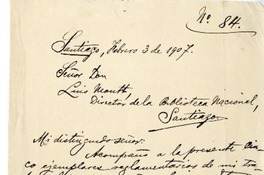 Nº 84.
Santiago, Febrero 3 de 1907.
Señor Don
Luis Montt
Director de la Biblioteca Nacional,
Santiago.
Mi distinguido señor:
Acompaño a la presente cin-
co ejemplares reglamentarios de mi tra-